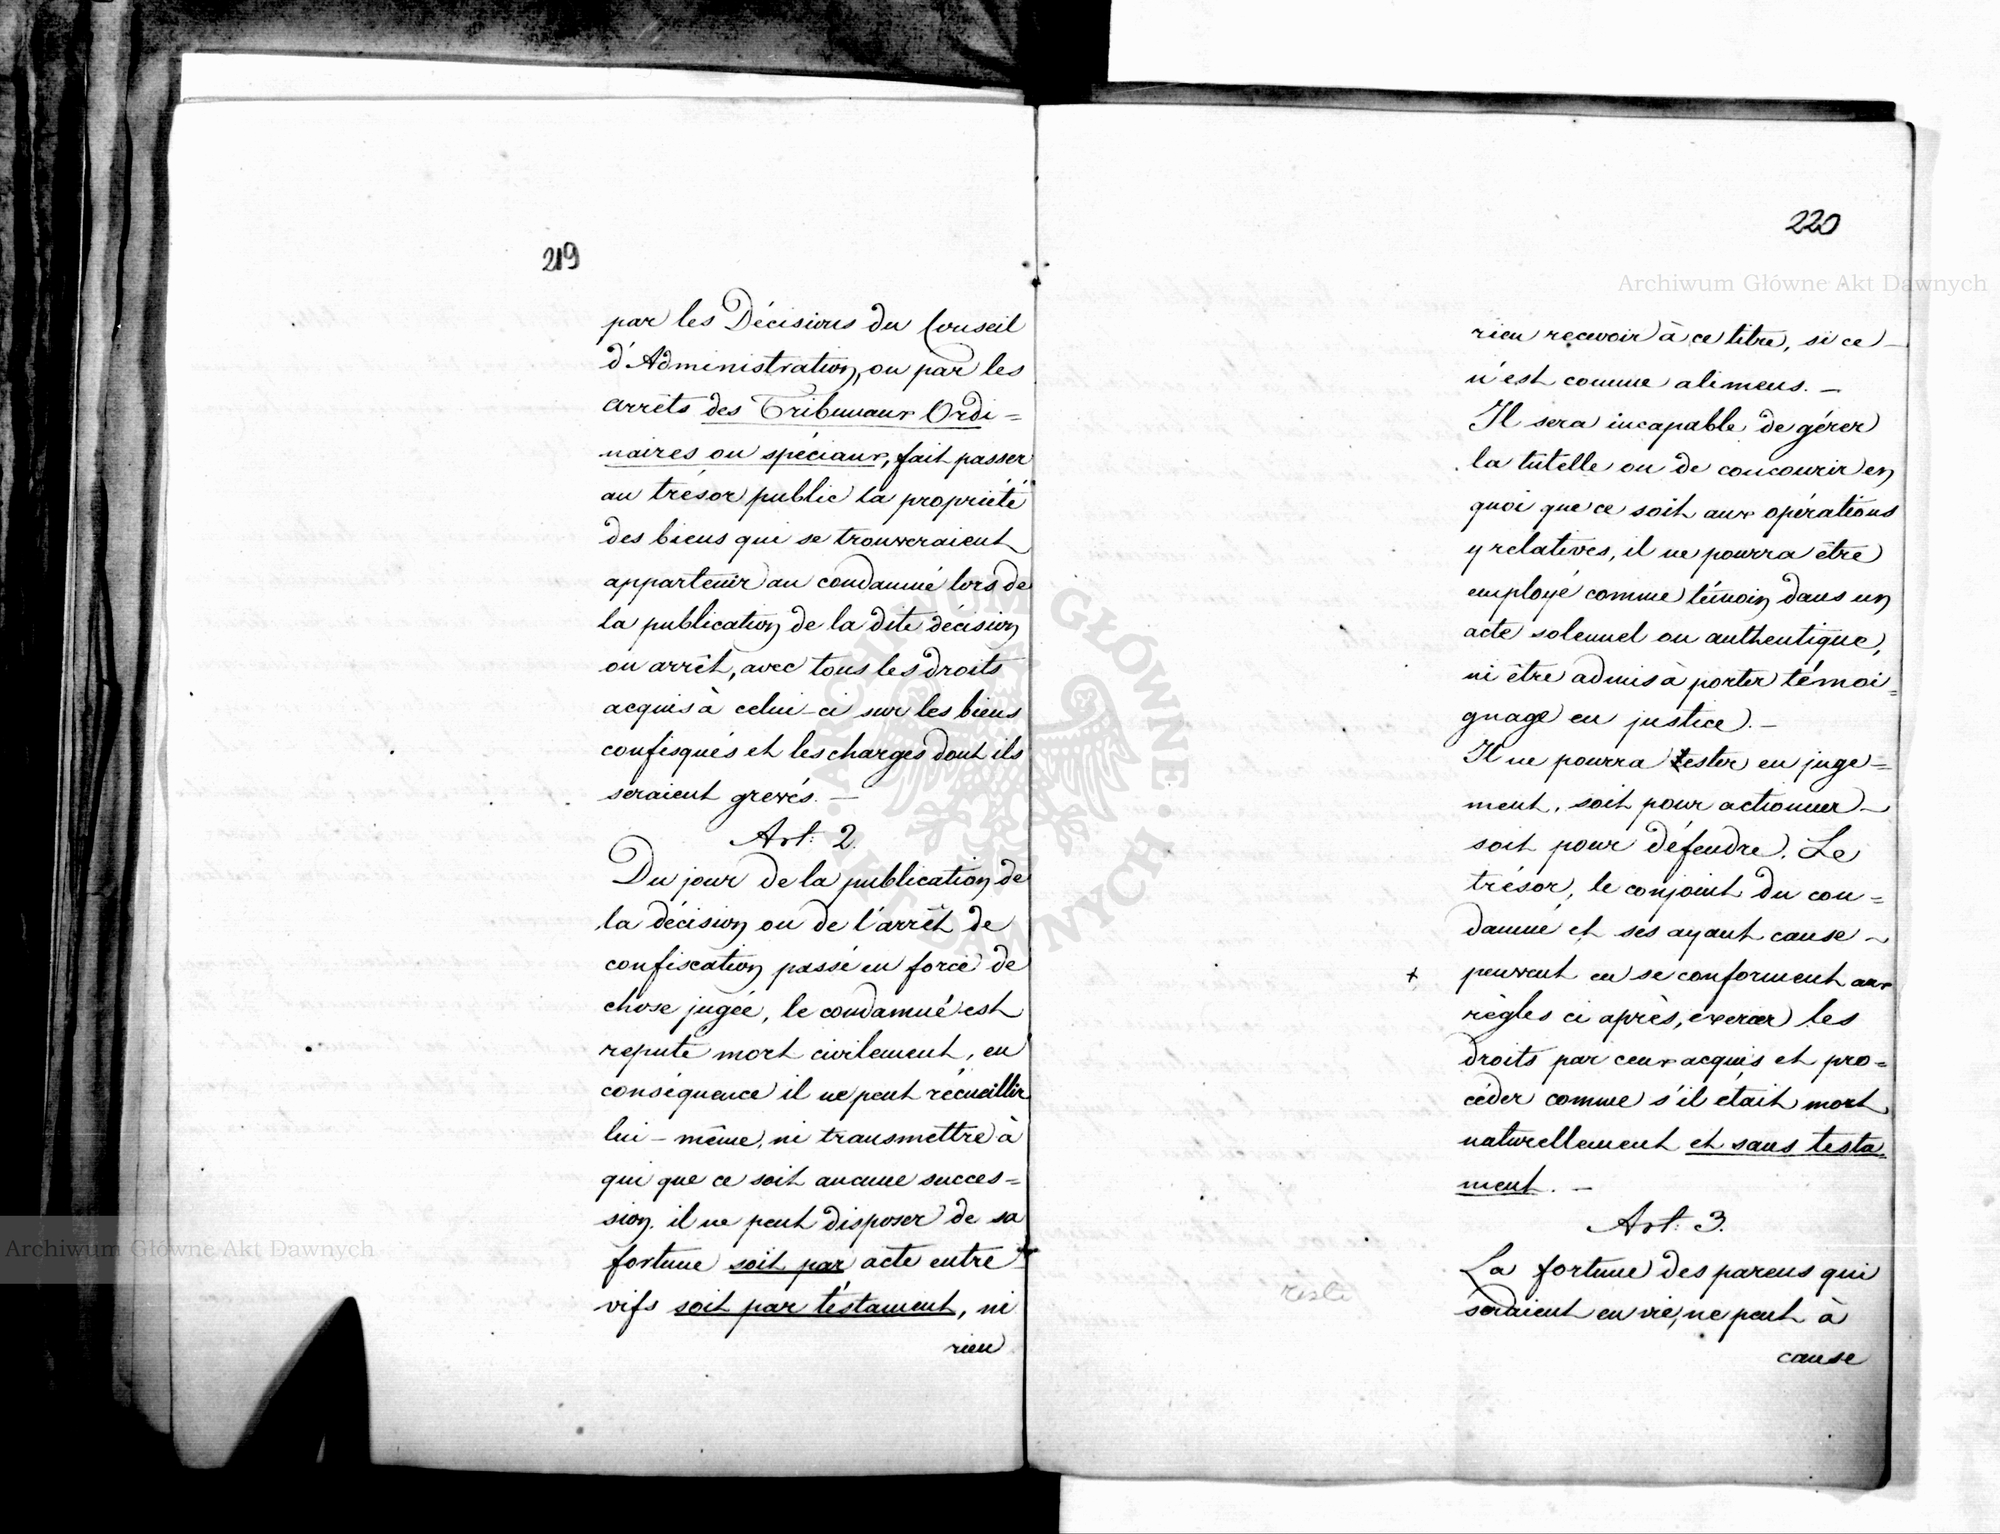 219
par les Décisions du Conseil
d'Administration, ou par les
arrêts des Tribunaux Ordi=
naires ou spéciaux, fait passer
au trésor public la propriété
des biens qui se trouveraient
appartenir au condamné lors de
la publication de la dite décision
ou arrêt, avec tous les droits
acquis à celui-ci sur les biens
confisqués et les charges dont ils
seraient grevés. —
Art: 2.
Du jour de la publication de
la décision ou de l'arrêt de
confiscation passé en force de
chose jugée, le condamné est
repute mort civilement, en
conséquence il ne peut récueillir
lui-même, ni transmettre à
qui que ce soit aucune succes=
sion, il ne peut disposer de sa
fortune soit par acte entre
vifs soit par testament, ni
rien
220
rien recevoir à ce titre, si ce —
n'est comme alimens. —
Il sera incapable de gérer
la tutelle ou de concourir en
quoi que ce soit aux opérations
y relatives, il ne pourra être
employé comme témoin dans un
acte solennel ou authentique,
ni être admis à porter témoi=
gnage en justice. —
Il ne pourra ester en juge=
ment, soit pour actionner —
soit pour défendre. Le
trésor, le conjoint du con=
damné et ses ayant cause —
+ peuvent en se conforment aux
règles ci après, exercer les
droits par ceux acquis et pro=
céder comme s'il était mort
naturellement et sans testa=
ment. —
Art: 3.
La fortune des parens qui
seraient en vie, ne peut à
cause
reste
Archiwum Główne Akt Dawnych
Archiwum Główne Akt Dawnych
ARCHIWUM GŁÓWNE AKT DAWNYCH